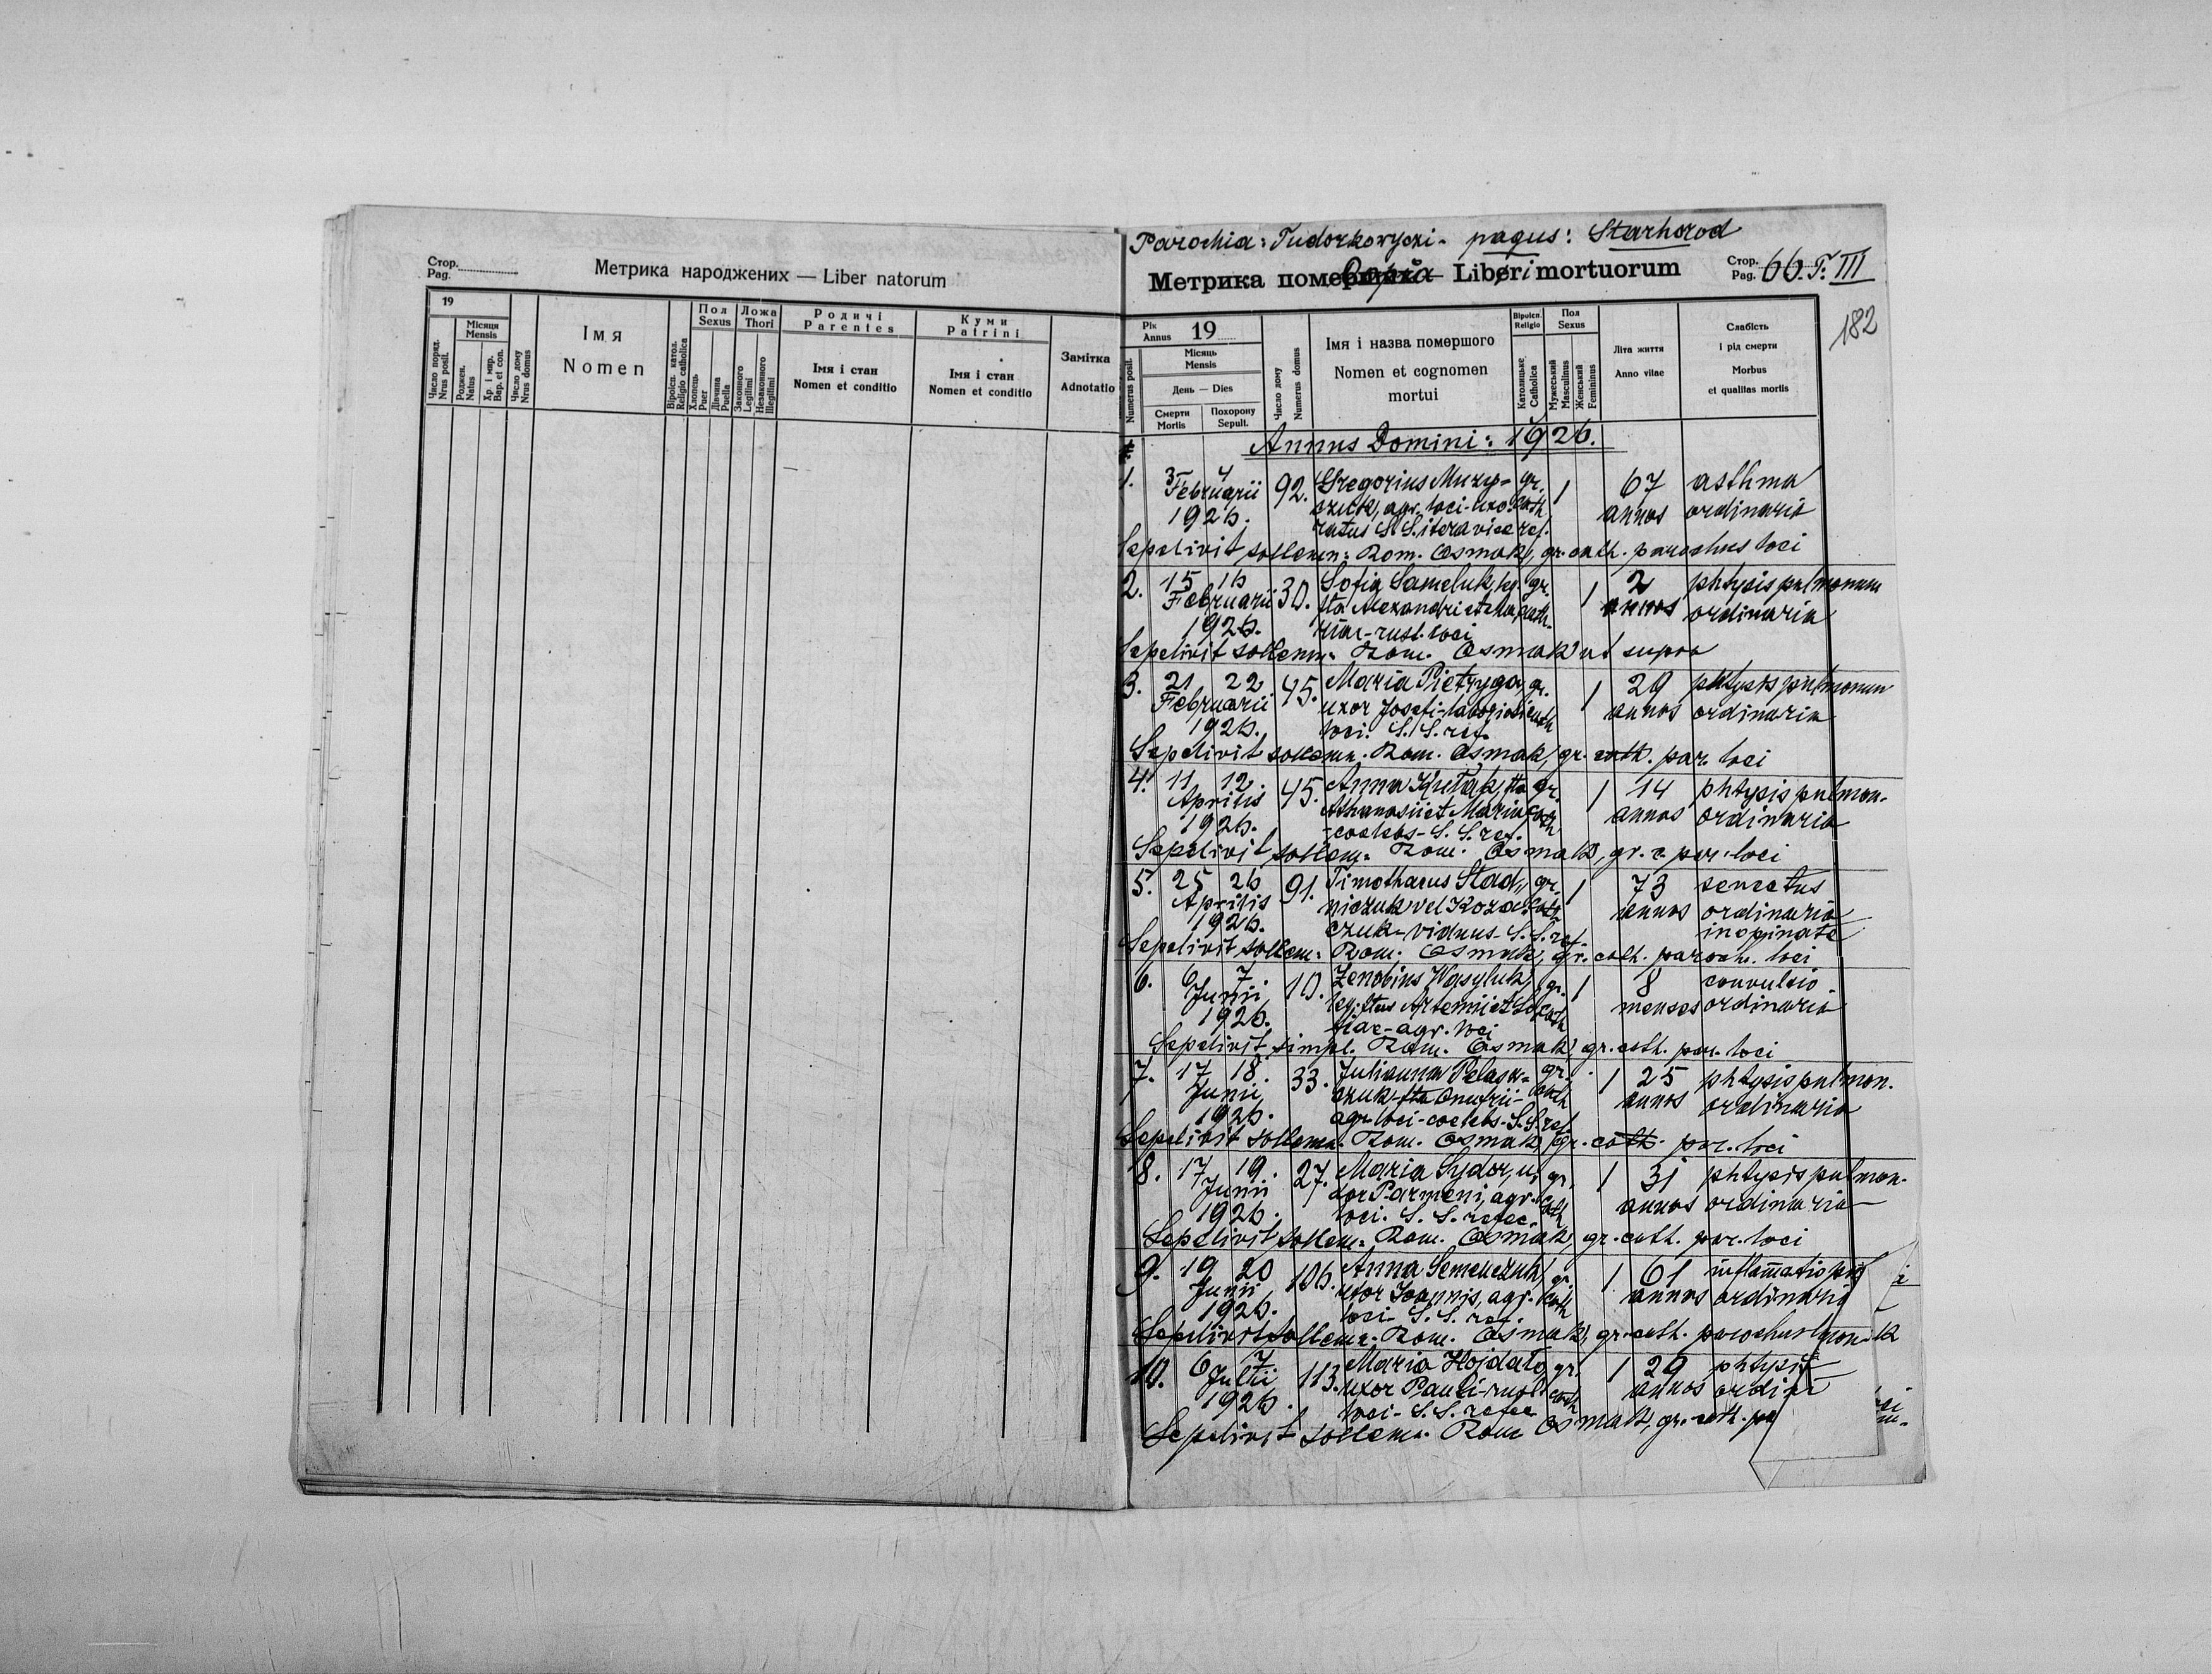 Стор.
Pag.
Метрика народжених — Liber natorum
19
Число поряд.
Nrus posit.
Місяця
Mensis
Роджен.
Natus
Хр. і мир.
Bap. et con.
Число дому
Nrus domus
Імя
Nomen
Віроісп. катол.
Religio catholica
Пол
Sexus
Хлопець
Puer
Дівчина
Puella
Ложа
Thori
Законного
Legitimi
Незаконного
Illegitimi
Родичі
Parentes
Імя і стан
Nomen et conditio
Куми
Patrini
Імя і стан
Nomen et conditio
Замітка
Adnotatio
Parochia: Tudorkowyczi - pagus: Starhorod
Метрика померших Copia Liberi mortuorum
Стор.
Pag. 66. T. III
182
Numerus posit.
Рік
Annus 19
Місяць
Mensis
День — Dies
Смерти
Mortis
Похорону
Sepult.
Число дому
Numerus domus
Імя і назва помершого
Nomen et cognomen
mortui
Віроісп.
Religio
Католицьке
Catholica
Пол
Sexus
Мужеський
Masculinus
Женський
Femininus
Літа життя
Anno vitae
Слабість
і рід смерти
Morbus
et qualitas mortis
Annus Domini: 1926.
1. 3 4 92. Gregorius Muzy- gr. 1 67 asthma
Februarii szuk, agr. loci-uxo- cath annos ordinaria
1926. ratus S.S. itera vice ref.
Sepelivit sollemn: Rom. Osmak, gr. cath. parochus loci
2. 15 16 30. Sofia Sameluk, leg. gr. 1 2 phtysis pulmonum
Februarii fta Alexandri et Ma- cath. annos ordinaria
1926. riae-rust. loci
Sepelivit sollemn: Rom. Osmak ut supra
3. 21 22 45. Maria Pietryga, gr. 1 29 phtysis pulmonum
Februarii uxor Josefi- cath annos ordinaria
1926. loci. S.S. ref.
Sepelivit sollemn. Rom. Osmak, gr. cath. par. loci
4. 11 12. 45. Anna fta gr. 1 14 phtysis pulmon.
Aprilis Athanasii et Mariae cath annos ordinaria
1926. -coelebs- S.S. ref.
Sepelivit sollem: Rom. Osmak, gr. c. par. loci
5. 25 26 91. Timothaeus Stad„ gr. 1 73 senectus
Aprilis niczuk vel Koza- cath annos ordinaria
1926. czuk-viduus- S.S. ref. inopinate
Sepelivit sollem: Rom. Osmak, gr. cath. paroch. loci
6. 6 7 10. Zenobius Wasyluk, gr. 1 8 convulsio
Junii leg. ftus Artemii et So- cath menses ordinaria
1926. fiae-agr. loci
Sepelivit simpl. Rom. Osmak, gr. cath. par. loci
7. 17 18. 33. Julianna Pelasz- gr. 1 25 phtysis pulmon.
Junii czuk-fta Onufrii- cath annos ordinaria
1926. agr. loci-coelebs-S.S. ref
Sepelivit sollemn. Rom. Osmak, gr. cath. par. loci
8. 17 19. 27. Maria Sydor, u- gr. 1 31 phtysis pulmon.
Junii xor Parmeni, agr. cath annos ordinaria
1926. loci. S.S. refec.
Sepelivit sollem: Rom. Osmak, gr. cath. par. loci
9. 19 20 106. Anna Semenczuk gr. 1 61 inflamatio
Junii uxor Joannis, agr. cath annos ordinaria
1926. loci- S.S. ref.
Sepelivit sollemn. Rom. Osmak, gr. cath. parochus
10. 6 7 113. Maria Hojdalo gr. 1 29 phtysis
Julii uxor Pauli-rust. cath annos ordina
1926. loci- S.S. refec
Sepelivit sollemn. Rom Osmak, gr. cath. pa